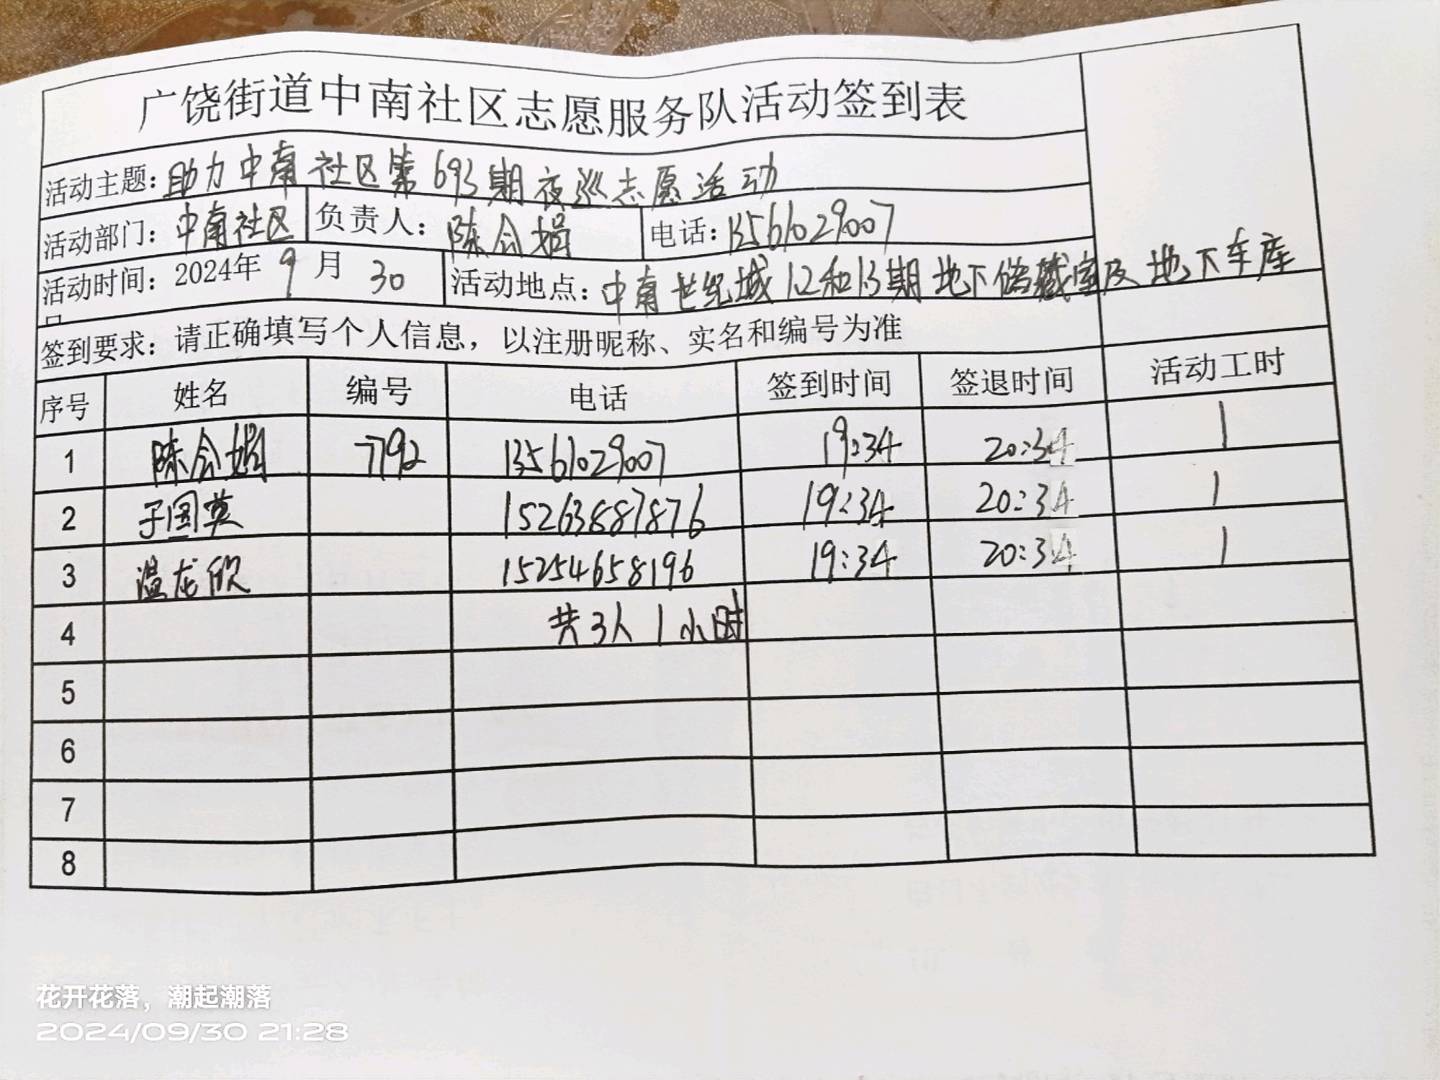 广饶街道中南社区志愿服务队活动签到表
活动主题：助力中南社区第693期夜巡志愿活动
活动部门：中南社区 负责人：陈会娟 电话：13561029007
活动时间：2024年 9 月 30 活动地点：中南世纪城12和13期地下储藏室及地下车库
日
签到要求：请正确填写个人信息，以注册昵称、实名和编号为准
序号 姓名 编号 电话 签到时间 签退时间 活动工时
1 陈会娟 7792 13561029007 19:34 20:34 1
2 于国英 15263887876 19:34 20:34 1
3 温龙欣 15254658196 19:34 20:34 1
4 共3人1小时
5
6
7
8
花开花落，潮起潮落
2024/09/30 21:28